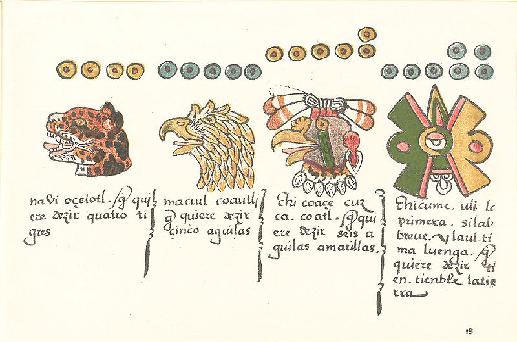 navi oçelotl. q̃ qui
ere dezir quatro ti
gres
macuil coauitl
q̃ quiere dezir
cinco aguilas
Chi coaçe cuz
ca. coatl. q̃ qui
ere dezir seis a
guilas amarillas.
Chicume. uli lo
primera. silab
breue. y laul. ti
ma luenga. q̃
quiere dezir ti
en. tienble latie
rra
19